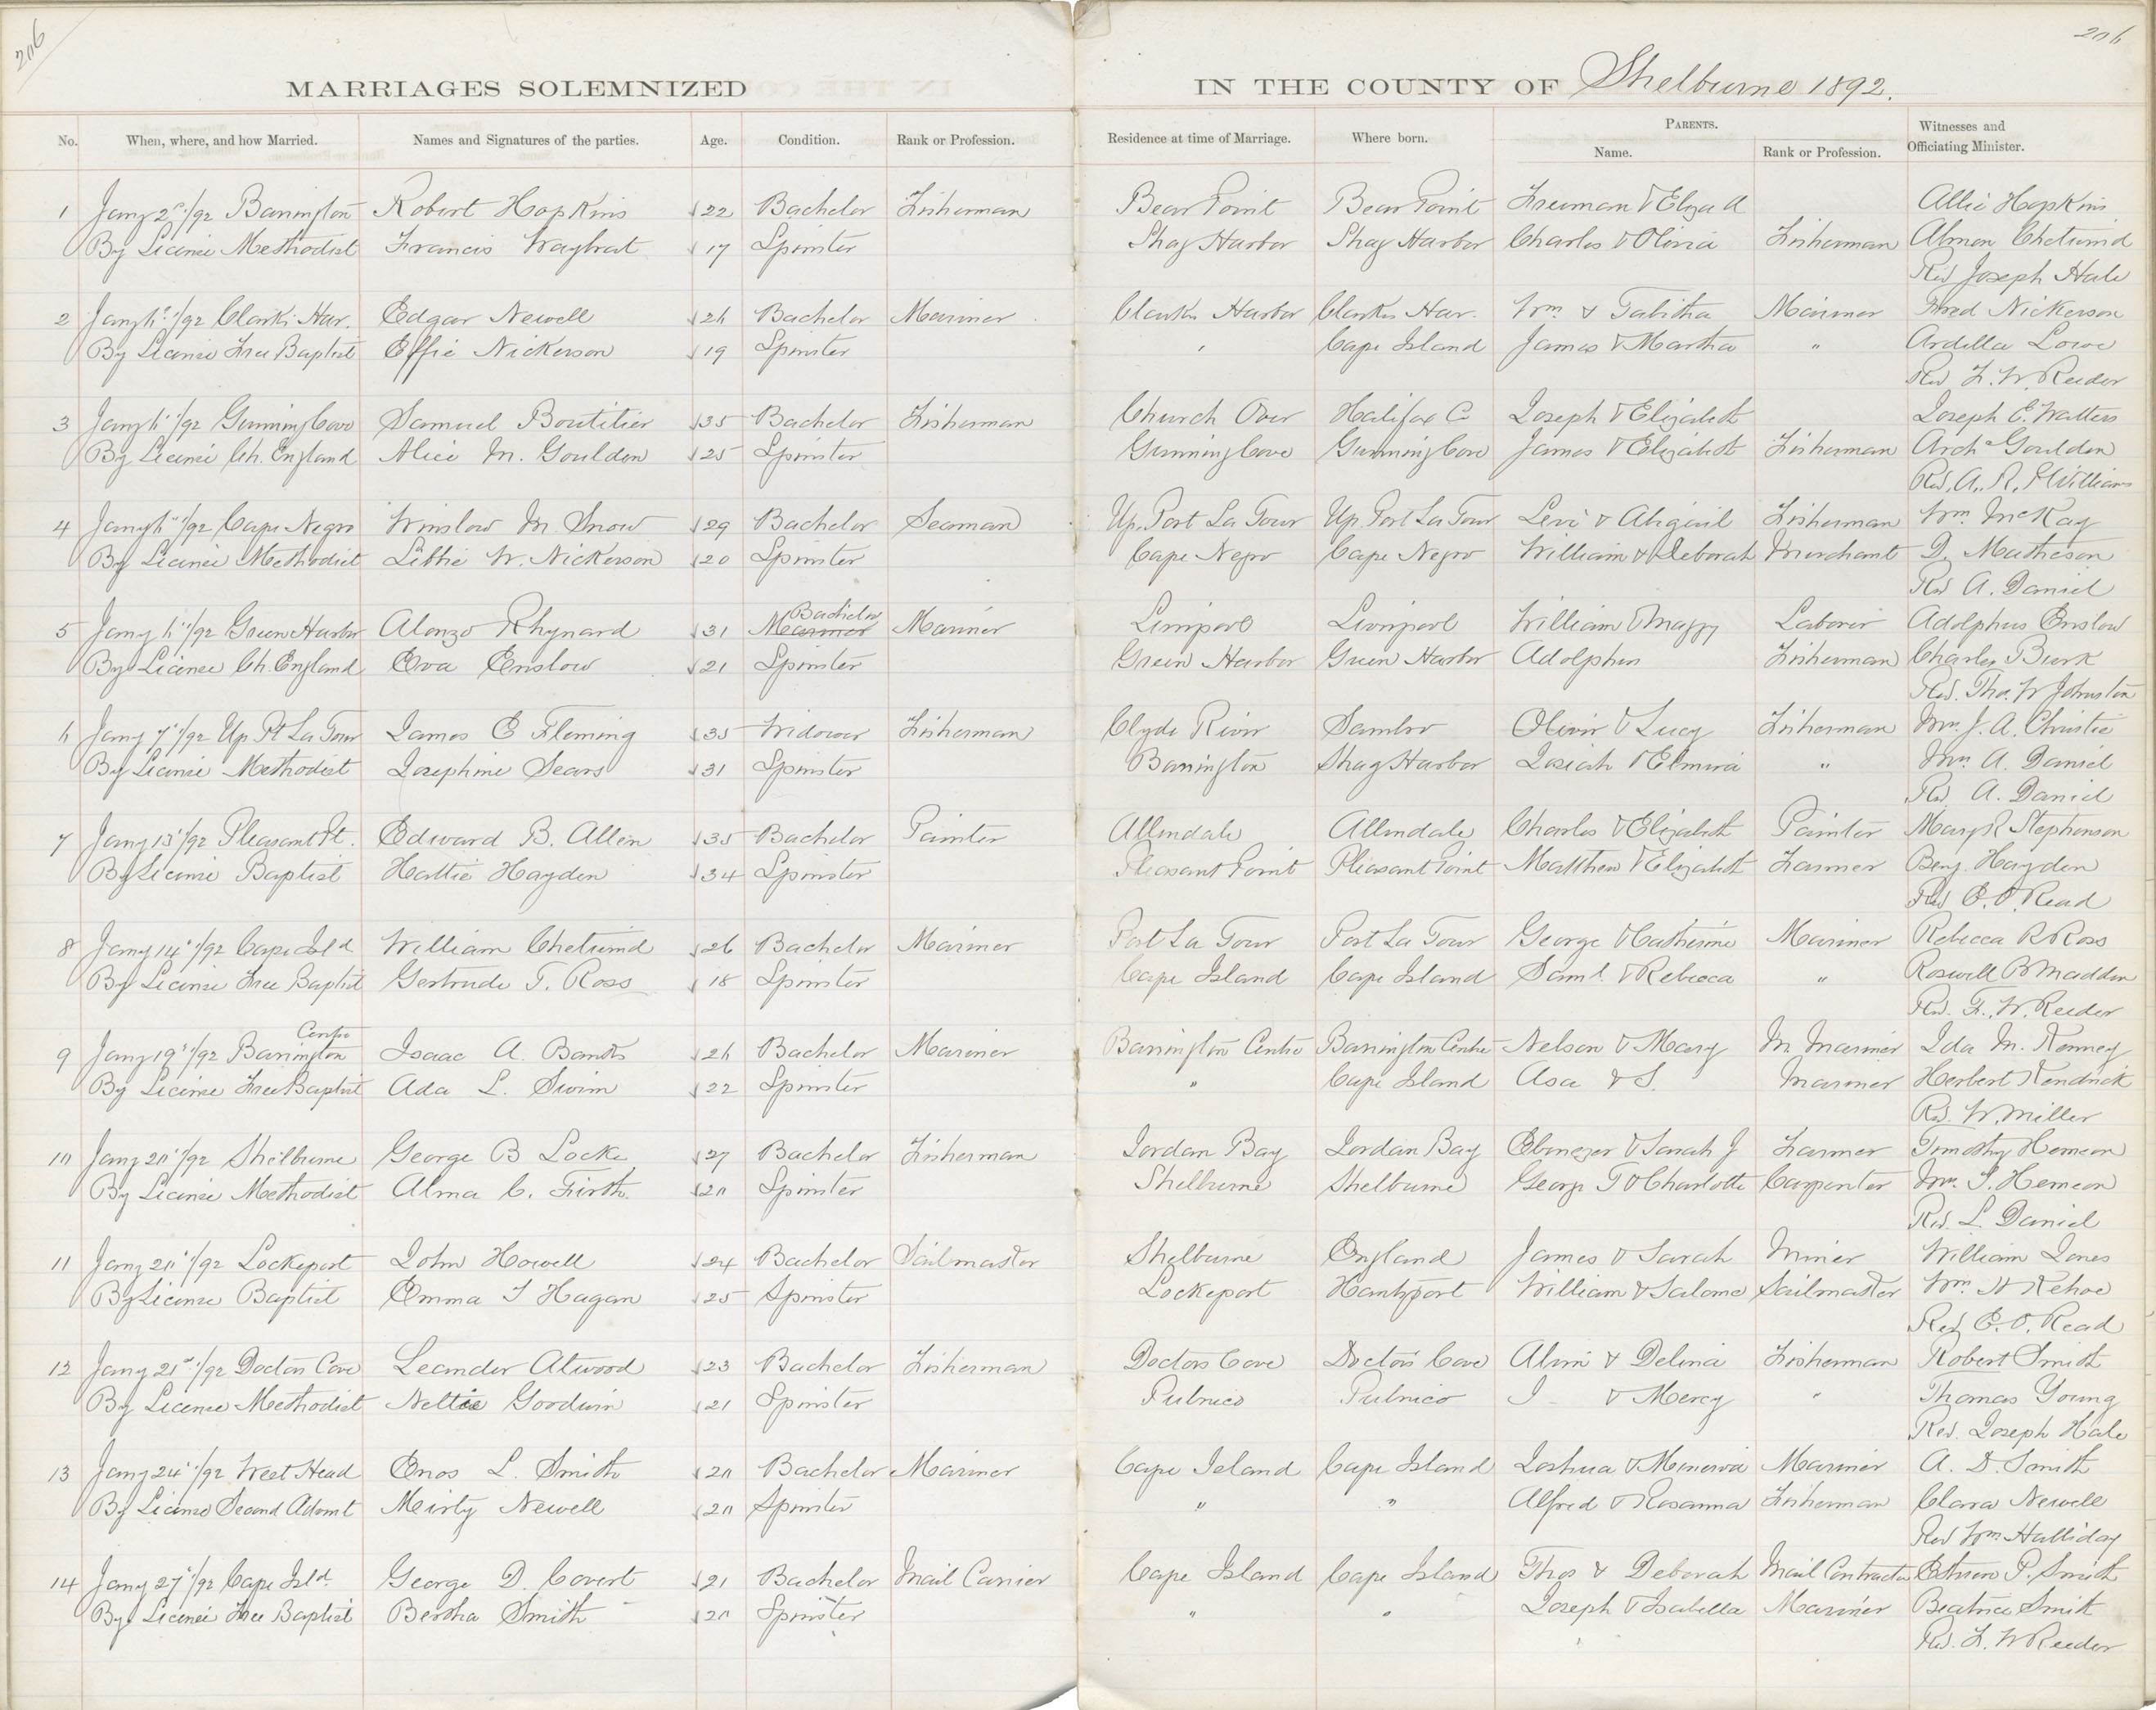 206
206
MARRIAGES SOLEMNIZED IN THE COUNTY OF Shelburne 1892.
No. When, where, and how Married. Names and Signatures of the parties. Age. Condition. Rank or Profession. Residence at time of Marriage. Where born. PARENTS. Name. Rank or Profession. Witnesses and Officiating Minister.
1 Jany 2d /92 Barrington Robert Hopkins 22 Bachelor Fisherman Bear Point Bear Point Freeman & Eliza A Allie Hopkins
By License Methodist Francis 17 Spinster Shag Harbor Shag Harbor Charles & Olivia Fisherman Almon Chetwind
Rev Joseph Hale
2 Jany 6" /92 Clarks Har. Edgar Newell 26 Bachelor Mariner Clarks Harbor Clarks Har. Wm & Tabitha Mariner Fred Nickerson
By License Free Baptist Effie Nickerson 19 Spinster " Cape Island James & Martha " Ardella Lowe
Rev F. W. Reeder
3 Jany 6" /92 Gunning Cove Samuel Boutilier 35 Bachelor Fisherman Church Over Halifax C Joseph & Elizabeth Joseph E. Watters
By License Ch. England Alice M. Goulden 25 Spinster Gunning Cove Gunning Cove James & Elizabeth Fisherman Archd Goulden
Rev. A. R. P. Williams
4 Jany 6" /92 Cape Negro Winslow M. Snow 29 Bachelor Seaman Up. Port La Tour Up. Port La Tour Levi & Abigail Fisherman Wm. McKay
By License Methodist Libbie W. Nickerson 20 Spinster Cape Negro Cape Negro William & Deborah Merchant D. Matheson
Rev A. Daniel
5 Jany 6" /92 Green Harbor Alonzo Rhynard 31 Bachelor Mariner Mariner Liverpool Liverpool William & Maggy Laborer Adolphus Enslow
By License Ch. England Eva Enslow 21 Spinster Green Harbor Green Harbor Adolphus Fisherman Charles Burk
Rev. Thos. W Johnston
6 Jany 7" /92 Up Pt La Tour James E Fleming 35 Widower Fisherman Clyde River Sambro Oliver & Lucy Fisherman Mrs. J. A. Christie
By License Methodist Josephine Sears 31 Spinster Barrington Shag Harbor Josiah & Elmira " Mrs. A. Daniel
Rev A. Daniel
7 Jany 13" /92 Pleasant Pt. Edward B. Allen 35 Bachelor Painter Allendale Allendale Charles & Elizabeth Painter Mary R Stephenson
By License Baptist Hattie Hayden 34 Spinster Pleasant Point Pleasant Point Matthew & Elizabeth Farmer Benj. Hayden
Rev E. O. Read
8 Jany 14" /92 Cape Isld William Chetwind 26 Bachelor Mariner Port La Tour Port La Tour George & Catherine Mariner Rebecca R Ross
By License Free Baptist Gertrude T. Ross 18 Spinster Cape Island Cape Island Saml. & Rebecca " Roswell B Madden
Rev. F. W. Reeder
9 Jany 19" /92 Barrington Centre Isaac A. Banks 26 Bachelor Mariner Barrington Centre Barrington Centre Nelson & Mary M. Mariner Ida M. Kenney
By License Free Baptist Ada L. Swim 22 Spinster " Cape Island Asa & S. Mariner Herbert Kendrick
Rev. W. Miller
10 Jany 20" /92 Shelburne George B Locke 27 Bachelor Fisherman Jordan Bay Jordan Bay Ebenezer & Sarah J Farmer Timothy Hemeon
By License Methodist Alma C. Firth 20 Spinster Shelburne Shelburne George T & Charlotte Carpenter Mrs. T. Hemeon
Rev. L. Daniel
11 Jany 20" /92 Lockeport John Howell 24 Bachelor Sailmaster Shelburne England James & Sarah Miner William Jones
By License Baptist Emma J Hagan 25 Spinster Lockeport Hantsport William & Salome Sailmaster Wm. H Kehoe
Rev E. O. Read
12 Jany 21st /92 Doctors Cove Leander Atwood 23 Bachelor Fisherman Doctors Cove Doctors Cove & Delina Fisherman Robert Smith
By License Methodist Nettie Goodwin 21 Spinster Pubnico Pubnico J & Mercy " Thomas Young
Rev. Joseph Hale
13 Jany 24" /92 West Head Enos L. Smith 20 Bachelor Mariner Cape Island Cape Island Joshua & Minerva Mariner A. D. Smith
By License Second Advent Mirty Newell 20 Spinster " " Alfred & Rosanna Fisherman Clara Newell
Rev Wm. Halliday
14 Jany 27" /92 Cape Isld. George D. Covert 21 Bachelor Mail Carrier Cape Island Cape Island Thos & Deborah Mail Contractor P. Smith
By License Free Baptist Bertha Smith 20 Spinster " " Joseph & Isabella Mariner Beatrice Smith
Rev. F. W Reeder